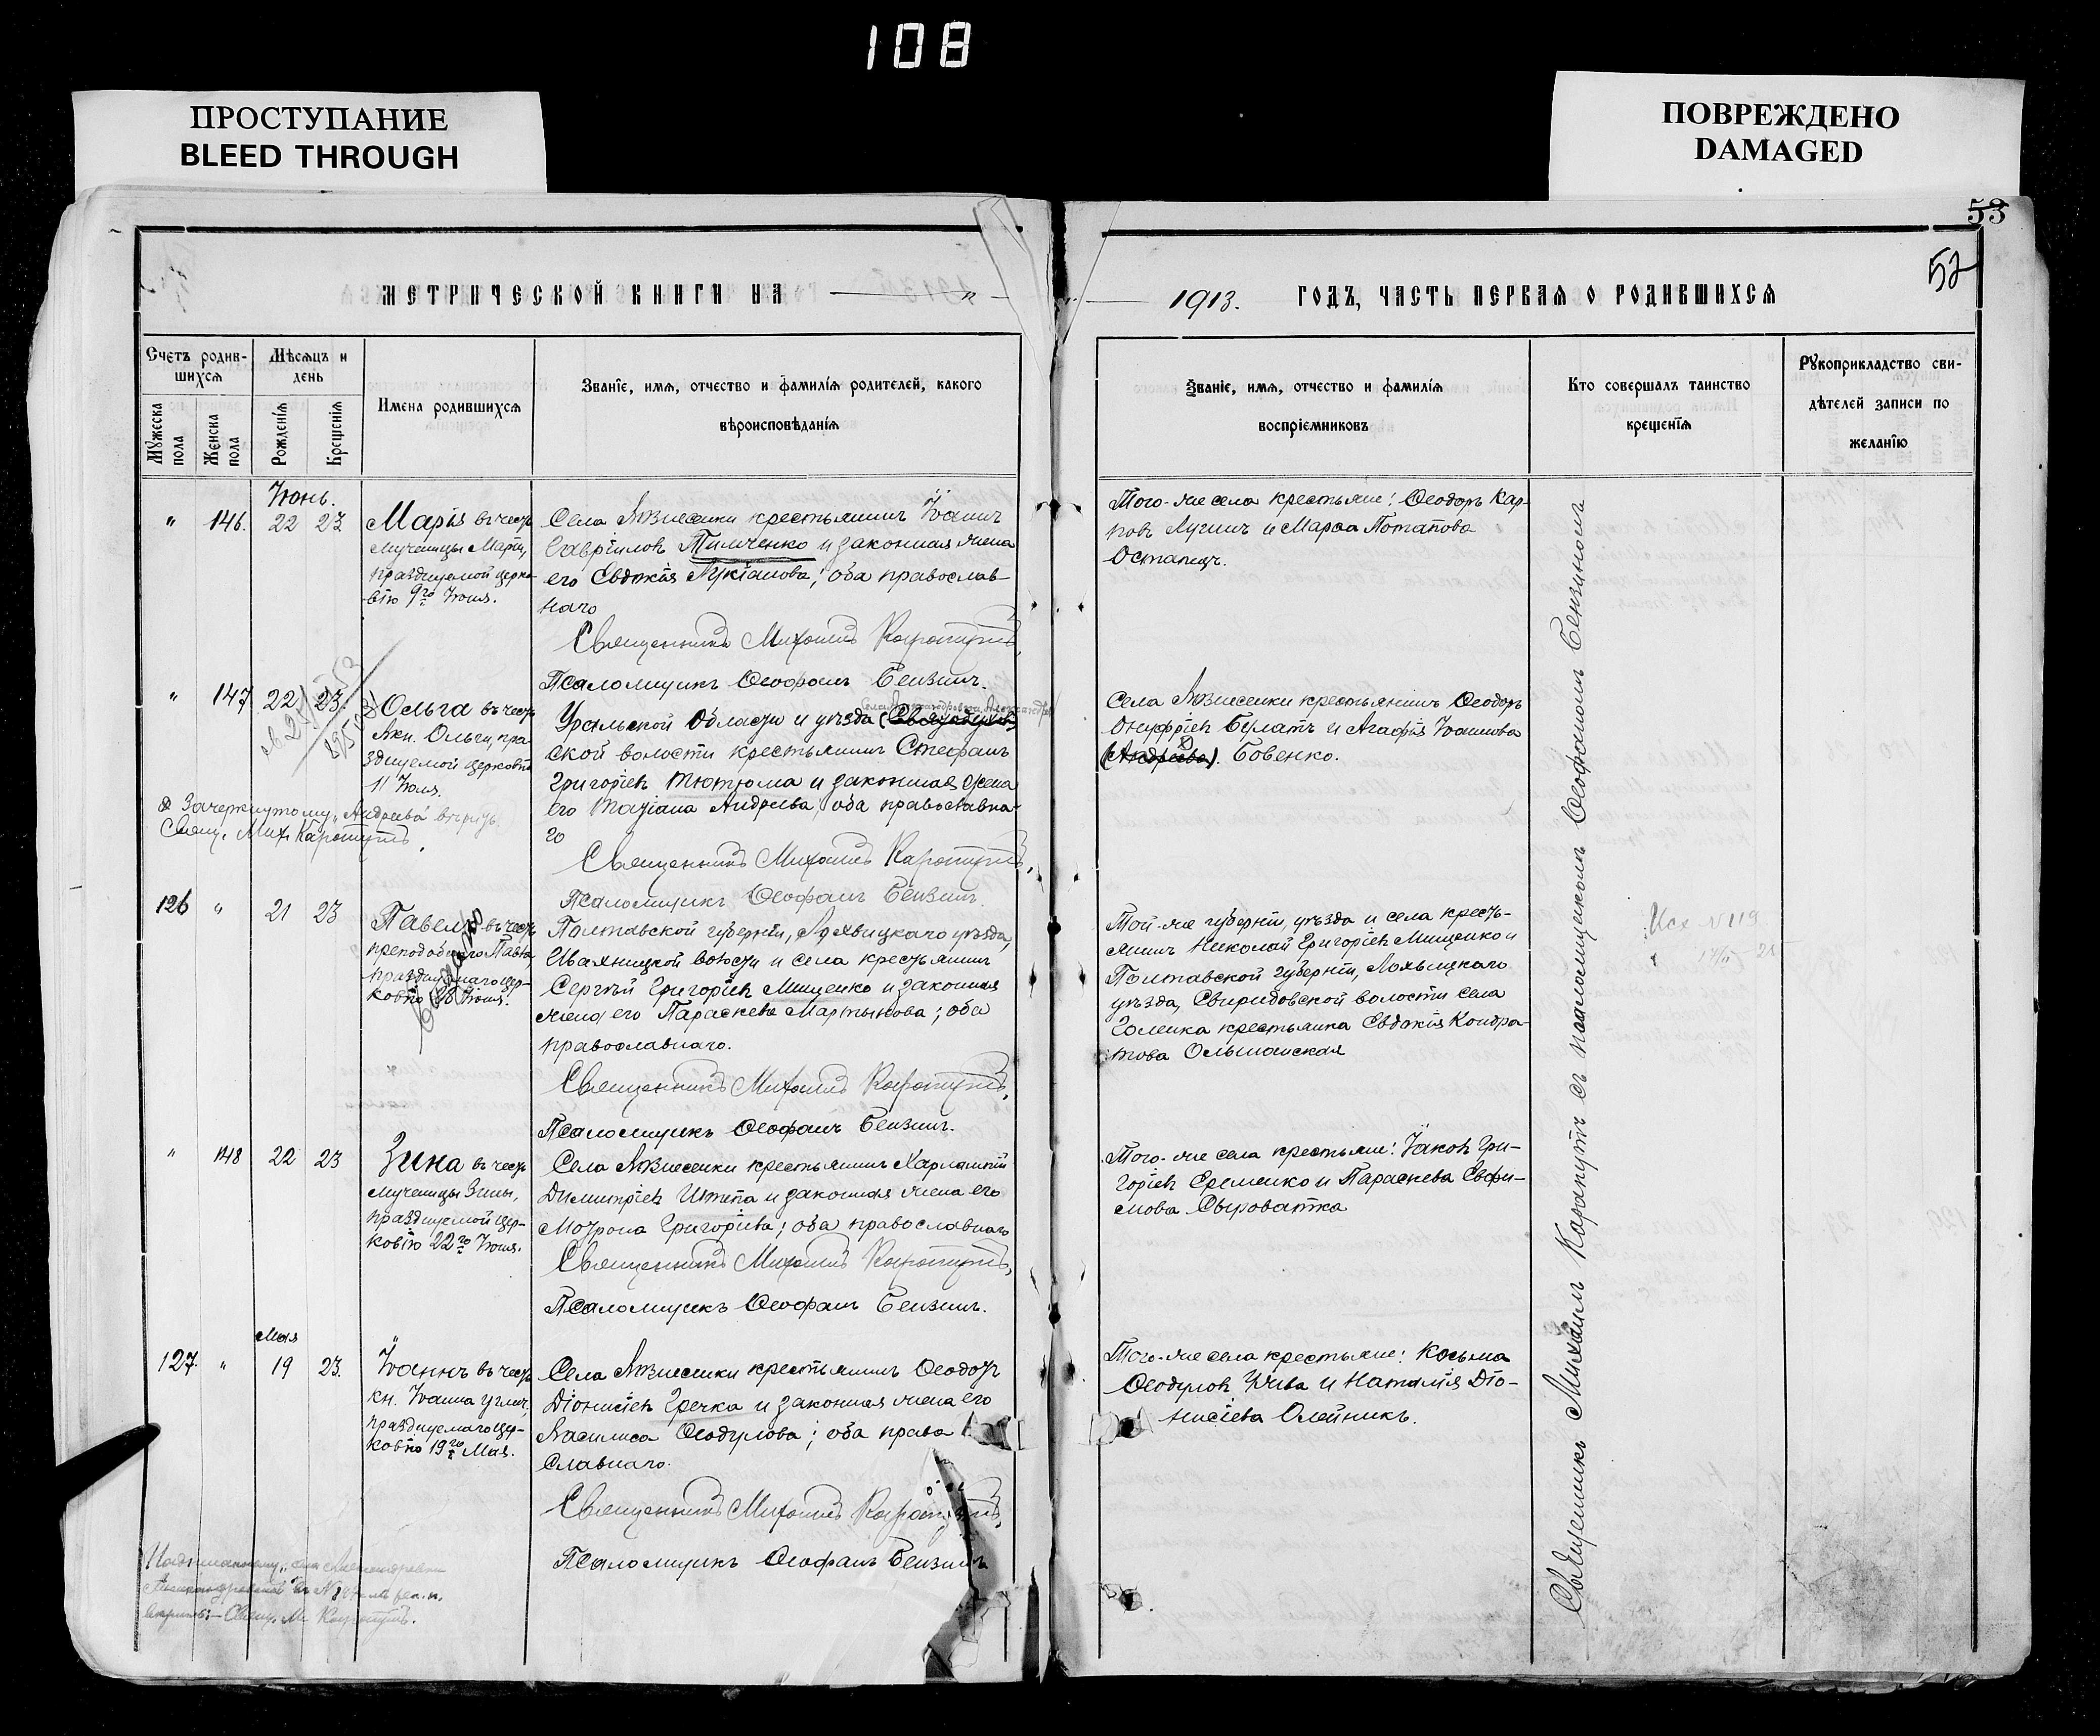 108
ПРОСТУПАНИЕ
BLEED THROUGH
ПОВРЕЖДЕНО
DAMAGED
53
52
МЕТРИЧЕСКОЙ КНИГИ НА
1913. ГОДЪ, ЧАСТЬ ПЕРВАЯ О РОДИВШИХСЯ
Счетъ родив-
шихся
Мѣсяцъ и
день
Мужеска пола
Женска пола
Рожденія
Крещенія
Имена родившихся
Званіе, имя, отчество и фамилія родителей, какого
вѣроисповѣданія
Званіе, имя, отчество и фамилія
воспріемниковъ
Кто совершалъ таинство
крещенія
Рукоприкладство сви-
дѣтелей записи по
желанію
Іюнь.
" 146. 22 23
Марія въ честь
мученицы Маріи,
празднуемой церко-
вію 9го Іюня.
Села Вознесенки крестьянинъ Іоаннъ
Гавріиловъ Тимченко и законная жена
его Евдокія Лукіанова; оба православ-
наго
Священникъ Михаилъ Карапутъ,
Псаломщикъ Ѳеофанъ Бензинъ.
Того-же села крестьяне: Ѳеодоръ Кар-
повъ Лугинъ и Марѳа Потапова
Остапецъ.
" 147 22 23.
Ольга въ честь
вкн. Ольги, пра-
зднуемой церковію
11 Іюля.
Уральской Области и уѣзда
ской волости крестьянинъ Стефанъ
Григоріевъ Тютюма и законная жена
его Татіана Андреева, оба православна-
го
Священникъ Михаилъ Карапутъ,
Псаломщикъ Ѳеофанъ Бензинъ.
Села Вознесенки крестьянинъ Ѳеодоръ
Онуфріевъ Булатъ и Агафія Іоаннова
(Андреева). Бовенко.
Зачеркнутому „Андреева" вѣрить.
Свящ. Мих. Карапутъ.
126 " 21 23
Павелъ въ честь
преподобнаго Павла,
празднуемаго цер-
ковію Іюня.
Полтавской губерніи, Лохвицкаго уѣзда,
Ивахницкой волости и села крестьянинъ
Сергѣй Григоріевъ Мищенко и законная
жена его Параскева Мартынова; оба
православнаго.
Священникъ Михаилъ Карапутъ,
Псаломщикъ Ѳеофанъ Бензинъ.
Той-же губерніи, уѣзда и села кресть-
янинъ Николай Григоріевъ Мищенко и
Полтавской губерніи, Лохвицкаго
уѣзда, Свиридовской волости села
Голенка крестьянка Евдокія Кондра-
това Ольшанская
Исх №119
" 148 22 23
Зина въ честь
мученицы Зины,
празднуемой цер-
ковію 22го Іюня.
Села Вознесенки крестьянинъ Харлампій
Димитріевъ Штепа и законная жена его
Матрона Григоріева; оба православнаго
Священникъ Михаилъ Карапутъ,
Псаломщикъ Ѳеофанъ Бензинъ.
Того-же села крестьяне: Іаковъ Гри-
горіевъ Еременко и Параскева Евфи-
мова Сыроватка
Мая
127. " 19 23.
Іоаннъ въ честь
кн. Іоанна Углич,
празднуемаго цер-
ковію 19го Мая.
Села Вознесенки крестьянинъ Ѳеодоръ
Діонисіевъ Гречка и законная жена его
Василиса Ѳеодулова; оба право
славнаго.
Священникъ Михаилъ Карапутъ,
Псаломщикъ Ѳеофанъ Бензинъ
Того-же села крестьяне: Косьма
Ѳеодуловъ и Наталія Діо-
нисіева Олейникъ.
Священникъ Михаилъ Карапутъ съ псаломщикомъ Ѳеофаномъ Бензинымъ
Свящ. М. Карапутъ.